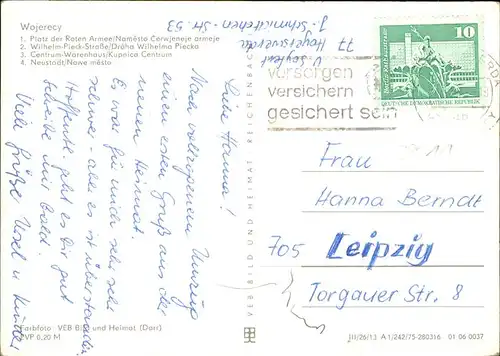 Wojerecy
1. Platz der Roten Armee/Naměsto Čerwjeneje armeje
2. Wilhelm-Pieck-Straße/Dróha Wilhelma Piecka
3. Centrum-Warenhaus/Kupnica Centrum
4. Neustadt/Nowe město
Liebe Hanna!
Nach vollzogenem Umzug
einen ersten Gruß aus der
neuen Heimat.
Es war für mich sehr sehr
schwer - aber es ist überstanden.
Hoffentl. geht es Dir gut
Schreibe mir bald.
Viele Grüße Ursel u. Kinder
Farbfoto VEB Bild und Heimat (Darr)
EVP 0,20 M
VEB BILD UND HEIMAT REICHENBACH
77 Hoyerswerda
Str. 53
vorsorgen
versichern
gesichert sein
10
DEUTSCHE DEMOKRATISCHE REPUBLIK
Frau
Hanna Berndt
705 Leipzig
Torgauer Str. 8
III/26/13 A 1/242/75-280316 01 06 0037